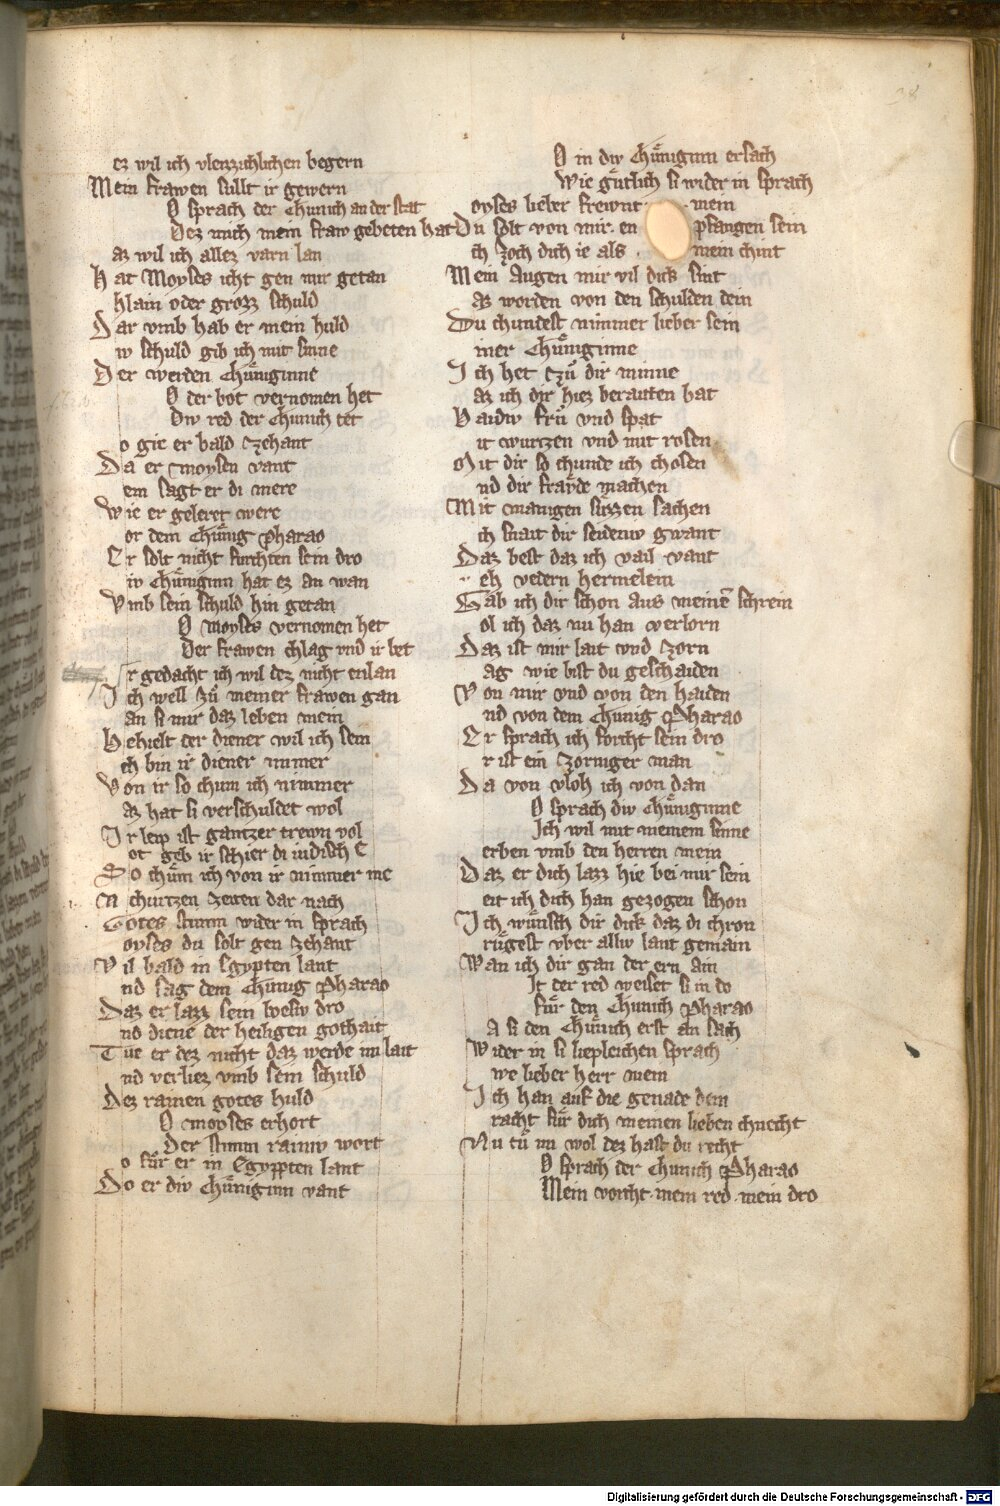 ez wil ich vleizzichlichen begern
Mein frawen sullt ir gewern
O sprach der chunich an der stat
Dez mich mein fraw gebeten hat
az wil ich allez varn lan
Hat Moyses icht gen mir getan
hlain oder grozz schuld
Dar vmb hab er mein huld
w schuld gib ich mit sinne
Der werden chůniginne
O der bot vernomen het
Div red der chunich tet
o gie er bald zehant
Da er moysen vant
em sagt er di mere
Wie er geleret were
or dem chůnig pharao
Er solt nicht furchten sein dro
iv chůniginn hat ez an wan
Vmb sein schuld hin getan
O moyses vernomen het
Der frawen chlag vnd ir bet
r gedacht ich wil dez nicht enlan
Ich well zů meiner frawen gan
an si mir daz leben mein
Behielt der diener wil ich sein
ch bin ir diener immer
Von ir so chum ich nimmer
az hat si verschuldet wol
Ir leip ist gantzer trewn vol
ot geb ir schier di iudisch E
So chům ich von ir nimmer me
N churtzen zeiten dar nach
Gotes stimm wider in sprach
oyses du solt gen zehant
Vil bald in Egypten lant
nd sag dem chunig pharao
Daz er lazz sein bosiv dro
nd diene der heiligen gothait
Tue er dez nicht daz werde im lait
nd verliez vmb sein schuld
Dez rainen gotes huld
O moyses erhort
Der stimm rainiv wort
o fůr er in Egyppten lant
Do er div chůniginn vant
O in div chůniginn ersach
Wie gůtlich si wider in sprach
oyses lieber frewnt mein
Du solt von mir en pfangen sein
ch zoch dich ie als mein chint
Mein augen mir vil dick sint
az worden von den schulden dein
Du chundest nimmer lieber sein
iner chůniginne
Ich het czů dir minne
az ich dir hiez beraitten bat
Baidiv frů vnd spat
it wurtzen vnd mit rosen
Mit dir so chunde ich chosen
nd dir fraude machen
Mit manigen suzzen sachen
ch snait dir seideniv gwant
Daz best daz ich vail vant
eh vedern hermelein
Gab ich dir schon aus meinē schrein
ol ich daz nu han verlorn
Daz ist mir lait vnd zorn
ag wie bist du geschaiden
Von mir vnd von den haiden
nd von dem chunig Pharao
Er sprach ich forcht sein dro
r ist ein zorniger man
Da von vloh ich von dan
O sprach div chůniginne
Ich wil mit meinem sinne
erben vmb den herren mein
Daz er dich lazz hie bei mir sein
eit ich dich han gezogen schon
Ich wůnsch dir dick daz di chron
růgest vber alliv lant gemain
Wan ich dir gan der ern ain
It der red weiset si in do
fůr den chunich pharao
A si den chůnich erst an sach
Wider in si liepleichen sprach
we lieber herr mein
Ich han auf die genade dein
racht fůr dich meinen lieben chnecht
Nu tů im wol dez hast du recht
O sprach der chunich Pharao
Mein vorcht mein red mein dro
Digitalisierung gefördert durch die Deutsche Forschungsgemeinschaft - DFG